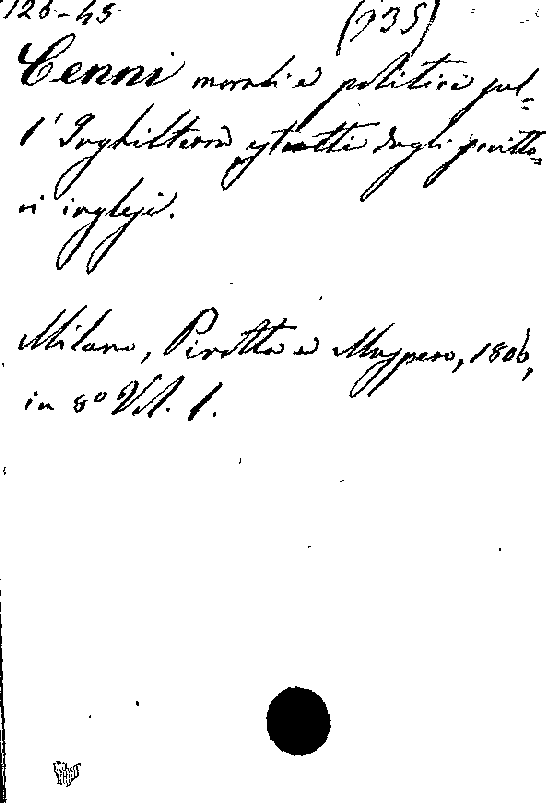 126-45 (935)
Cenni morali e politici sul-
l'Inghilterra estratti dagli scritto-
ri inglesi.
Milano, Pirotta e Maspero, 1806,
in 8º Vol. 1.